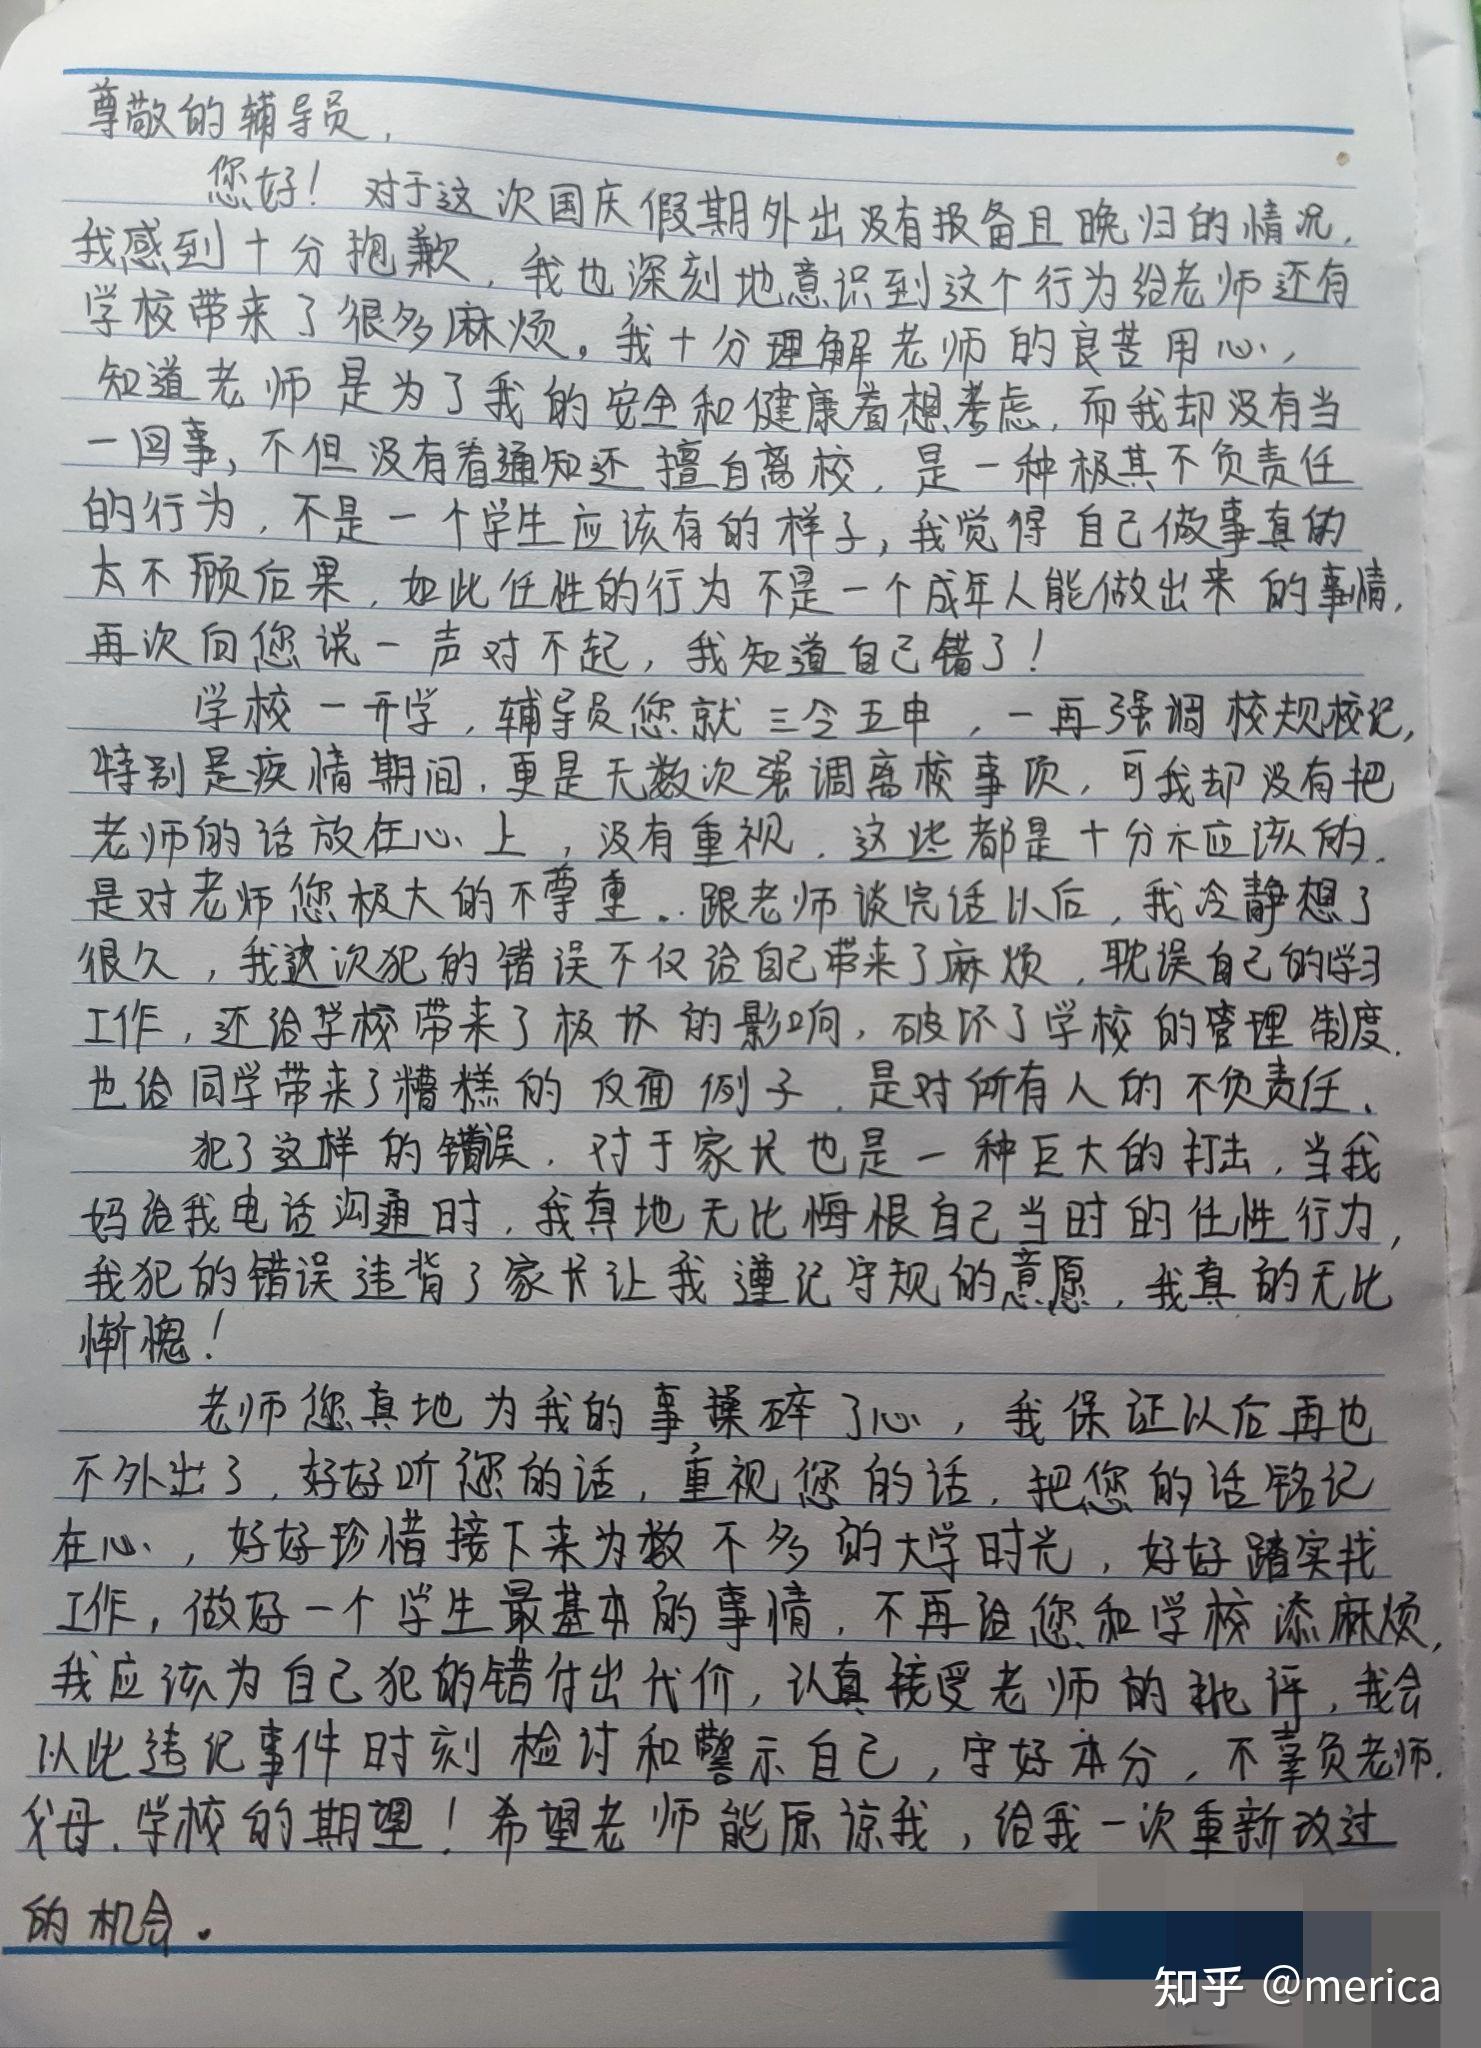 尊敬的辅导员,
您好！对于这次国庆假期外出没有报备且晚归的情况,
我感到十分抱歉,我也深刻地意识到这个行为给老师还有
学校带来了很多麻烦。我十分理解老师的良苦用心,
知道老师是为了我的安全和健康着想考虑,而我却没有当
一回事,不但没有看通知还擅自离校,是一种极其不负责任
的行为,不是一个学生应该有的样子,我觉得自己做事真的
太不顾后果,如此任性的行为不是一个成年人能做出来的事情,
再次向您说一声对不起,我知道自己错了！
学校一开学,辅导员您就三令五申,一再强调校规校记,
特别是疾情期间,更是无数次强调离校事项,可我却没有把
老师的话放在心上,没有重视,这些都是十分不应该的,
是对老师您极大的不尊重。跟老师谈完话以后,我冷静想了
很久,我这次犯的错误不仅给自己带来了麻烦,耽误自己的学习
工作,还给学校带来了极坏的影响,破坏了学校的管理制度,
也给同学带来了糟糕的反面例子,是对所有人的不负责任、
犯了这样的错误,对于家长也是一种巨大的打击,当我
妈给我电话沟通时,我真地无比悔恨自己当时的任性行为,
我犯的错误违背了家长让我遵记守规的意愿,我真的无比
惭愧！
老师您真地为我的事操碎了心,我保证以后再也
不外出了,好好听您的话,重视您的话,把您的话铭记
在心,好好珍惜接下来为数不多的大学时光,好好踏实找
工作,做好一个学生最基本的事情,不再给您和学校添麻烦,
我应该为自己犯的错付出代价,认真接受老师的批评,我会
以此违记事件时刻检讨和警示自己,守好本分,不辜负老师.
父母、学校的期望！希望老师能原谅我,给我一次重新改过
的机会.
知乎 @merica